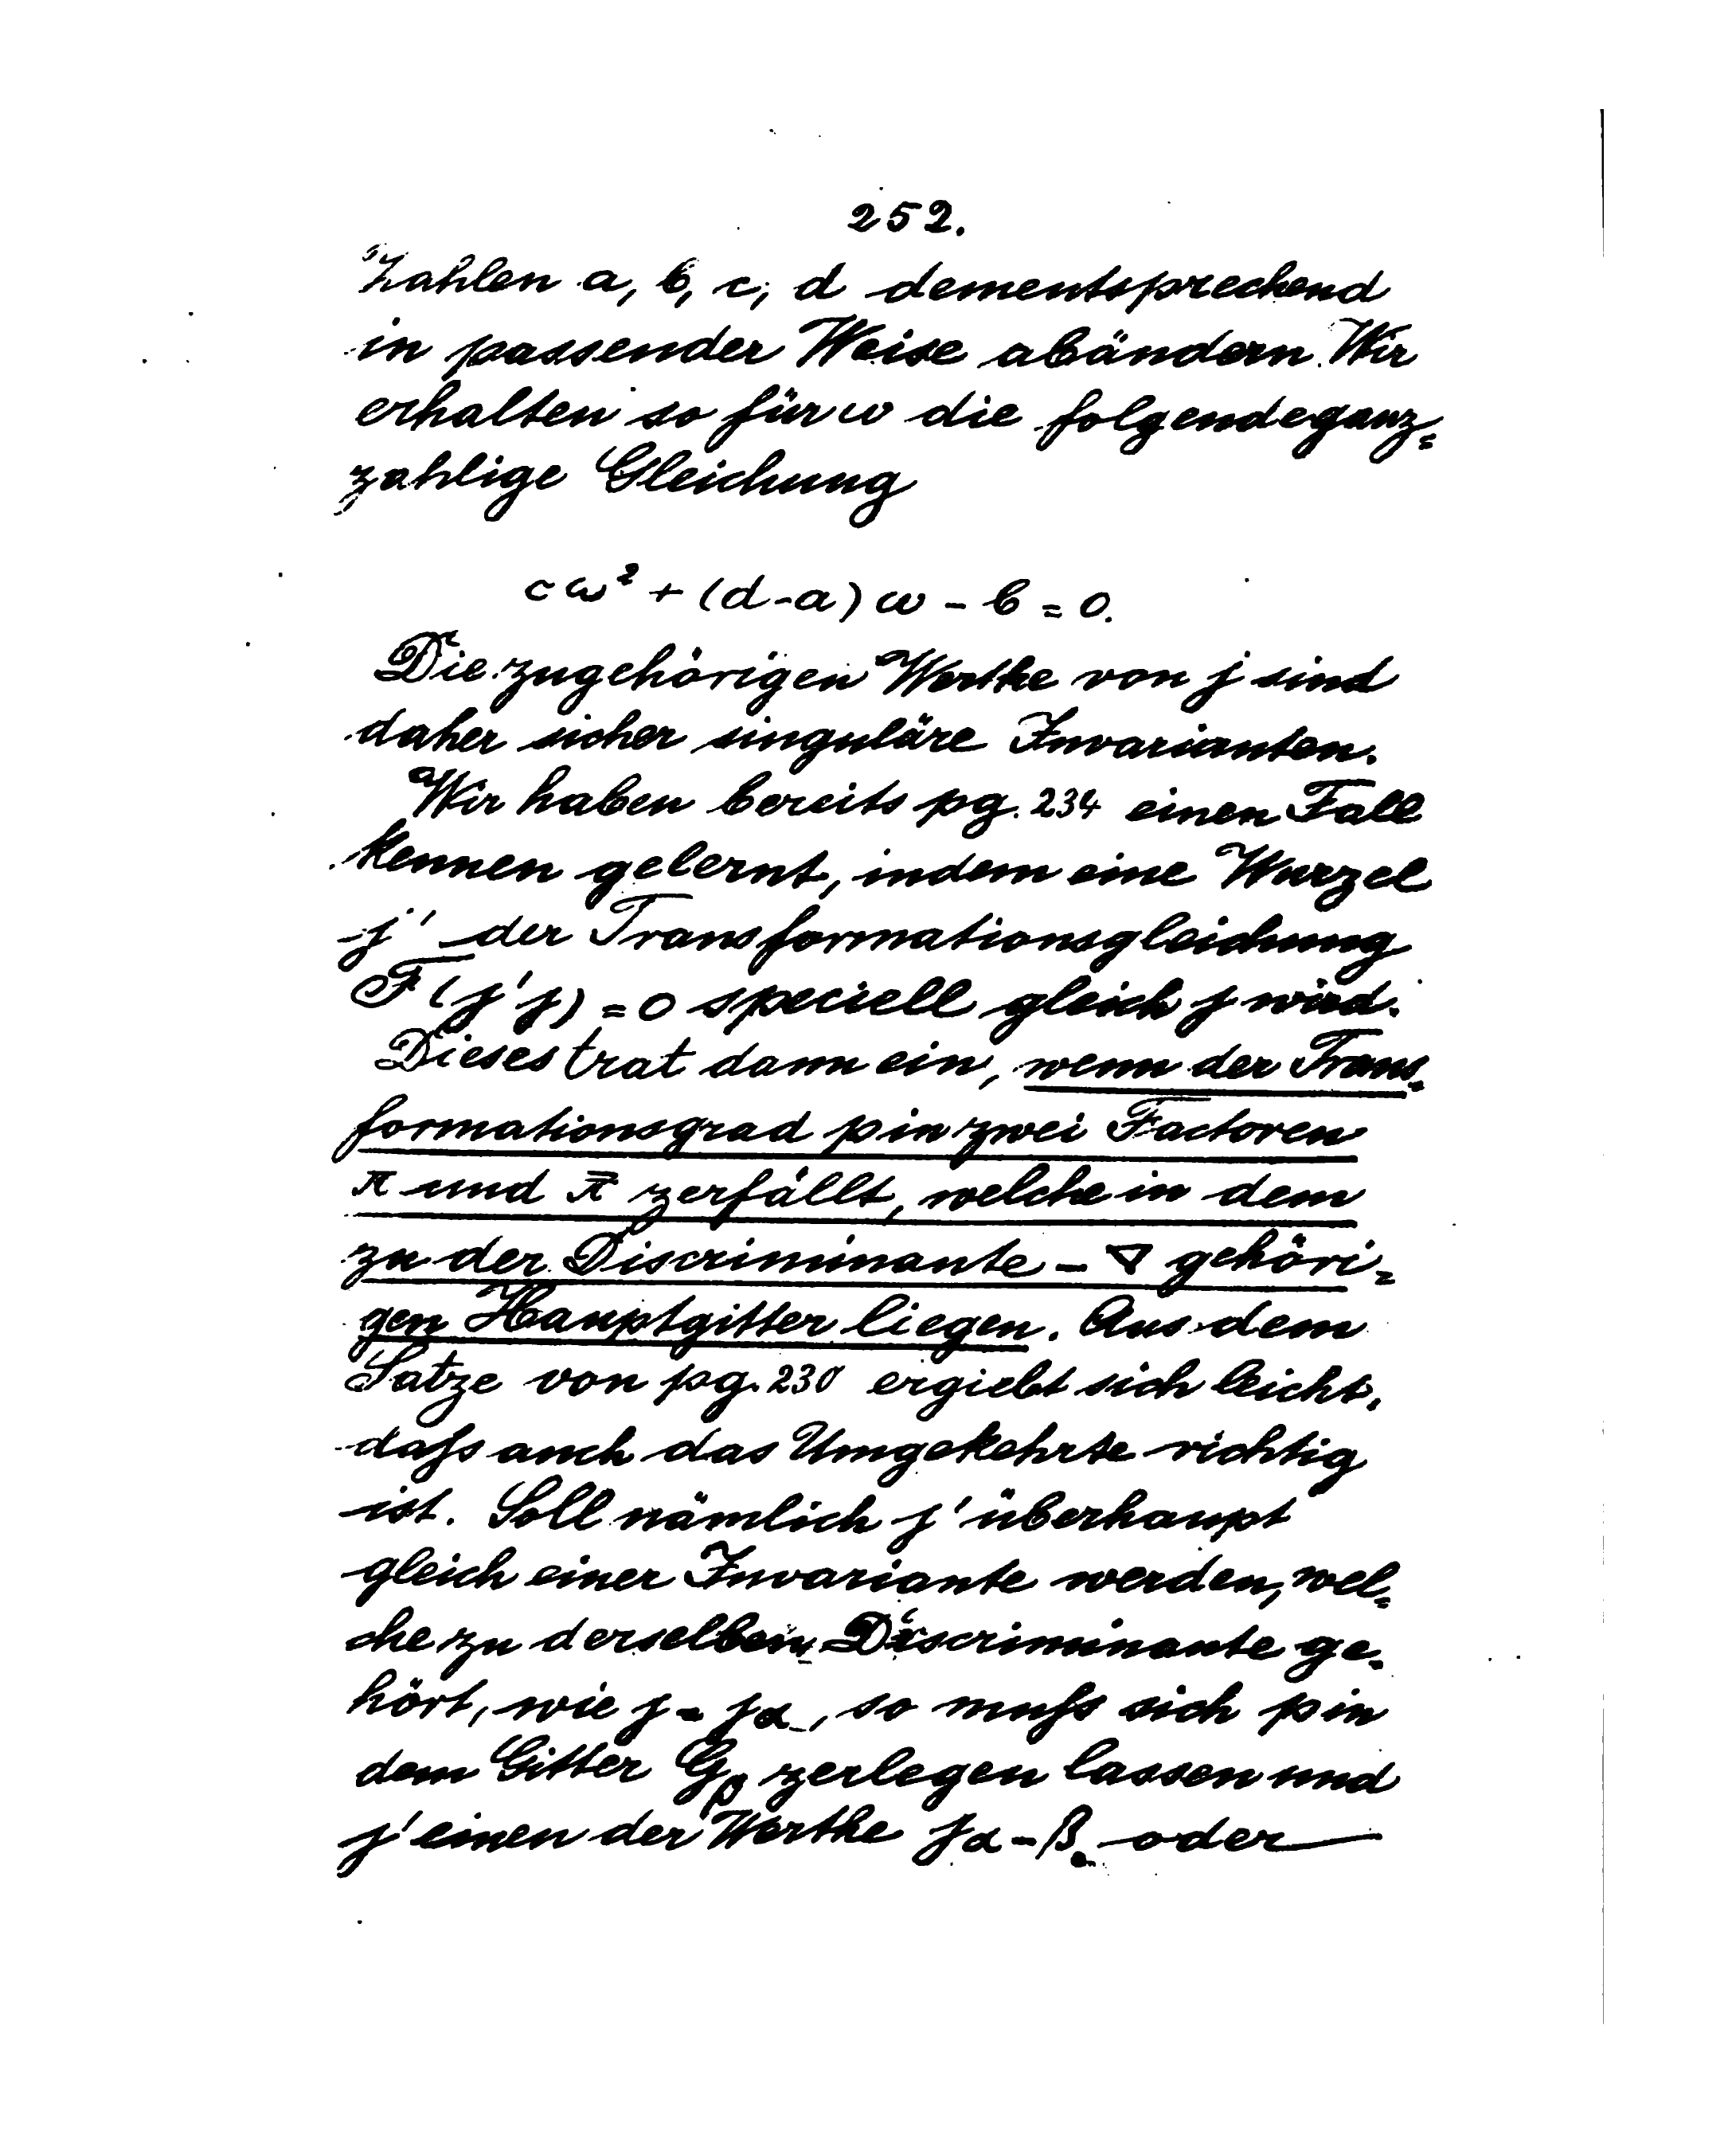 252.
Zahlen a, b, c, d dementsprechend
in passender Weise abändern. Wir
erhalten so für ω die folgende ganz=
zahlige Gleichung
cω² + (d-a) ω - b = 0.
Die zugehörigen Werthe von j sind
daher sicher singuläre Invarianten.
Wir haben bereits pg. 234 einen Fall
kennen gelernt, indem eine Wurzel
j' der Transformationsgleichung
F(j'j) = 0 speciell gleich j wird.
Dieses trat dann ein, wenn der Trans=
formationsgrad p in zwei Factoren
π und π̄ zerfällt, welche in dem
zu der Discriminante - ∇ gehöri=
gen Hauptgitter liegen. Aus dem
Satze von pg. 230 ergiebt sich leicht,
daſs auch das Umgekehrte richtig
ist. Soll nämlich j' überhaupt
gleich einer Invariante werden, wel=
che zu derselben Discriminante ge=
hört, wie j = jα, so muſs sich p in
dem Gitter Gβ zerlegen lassen und
j' einen der Werthe jα-β oder